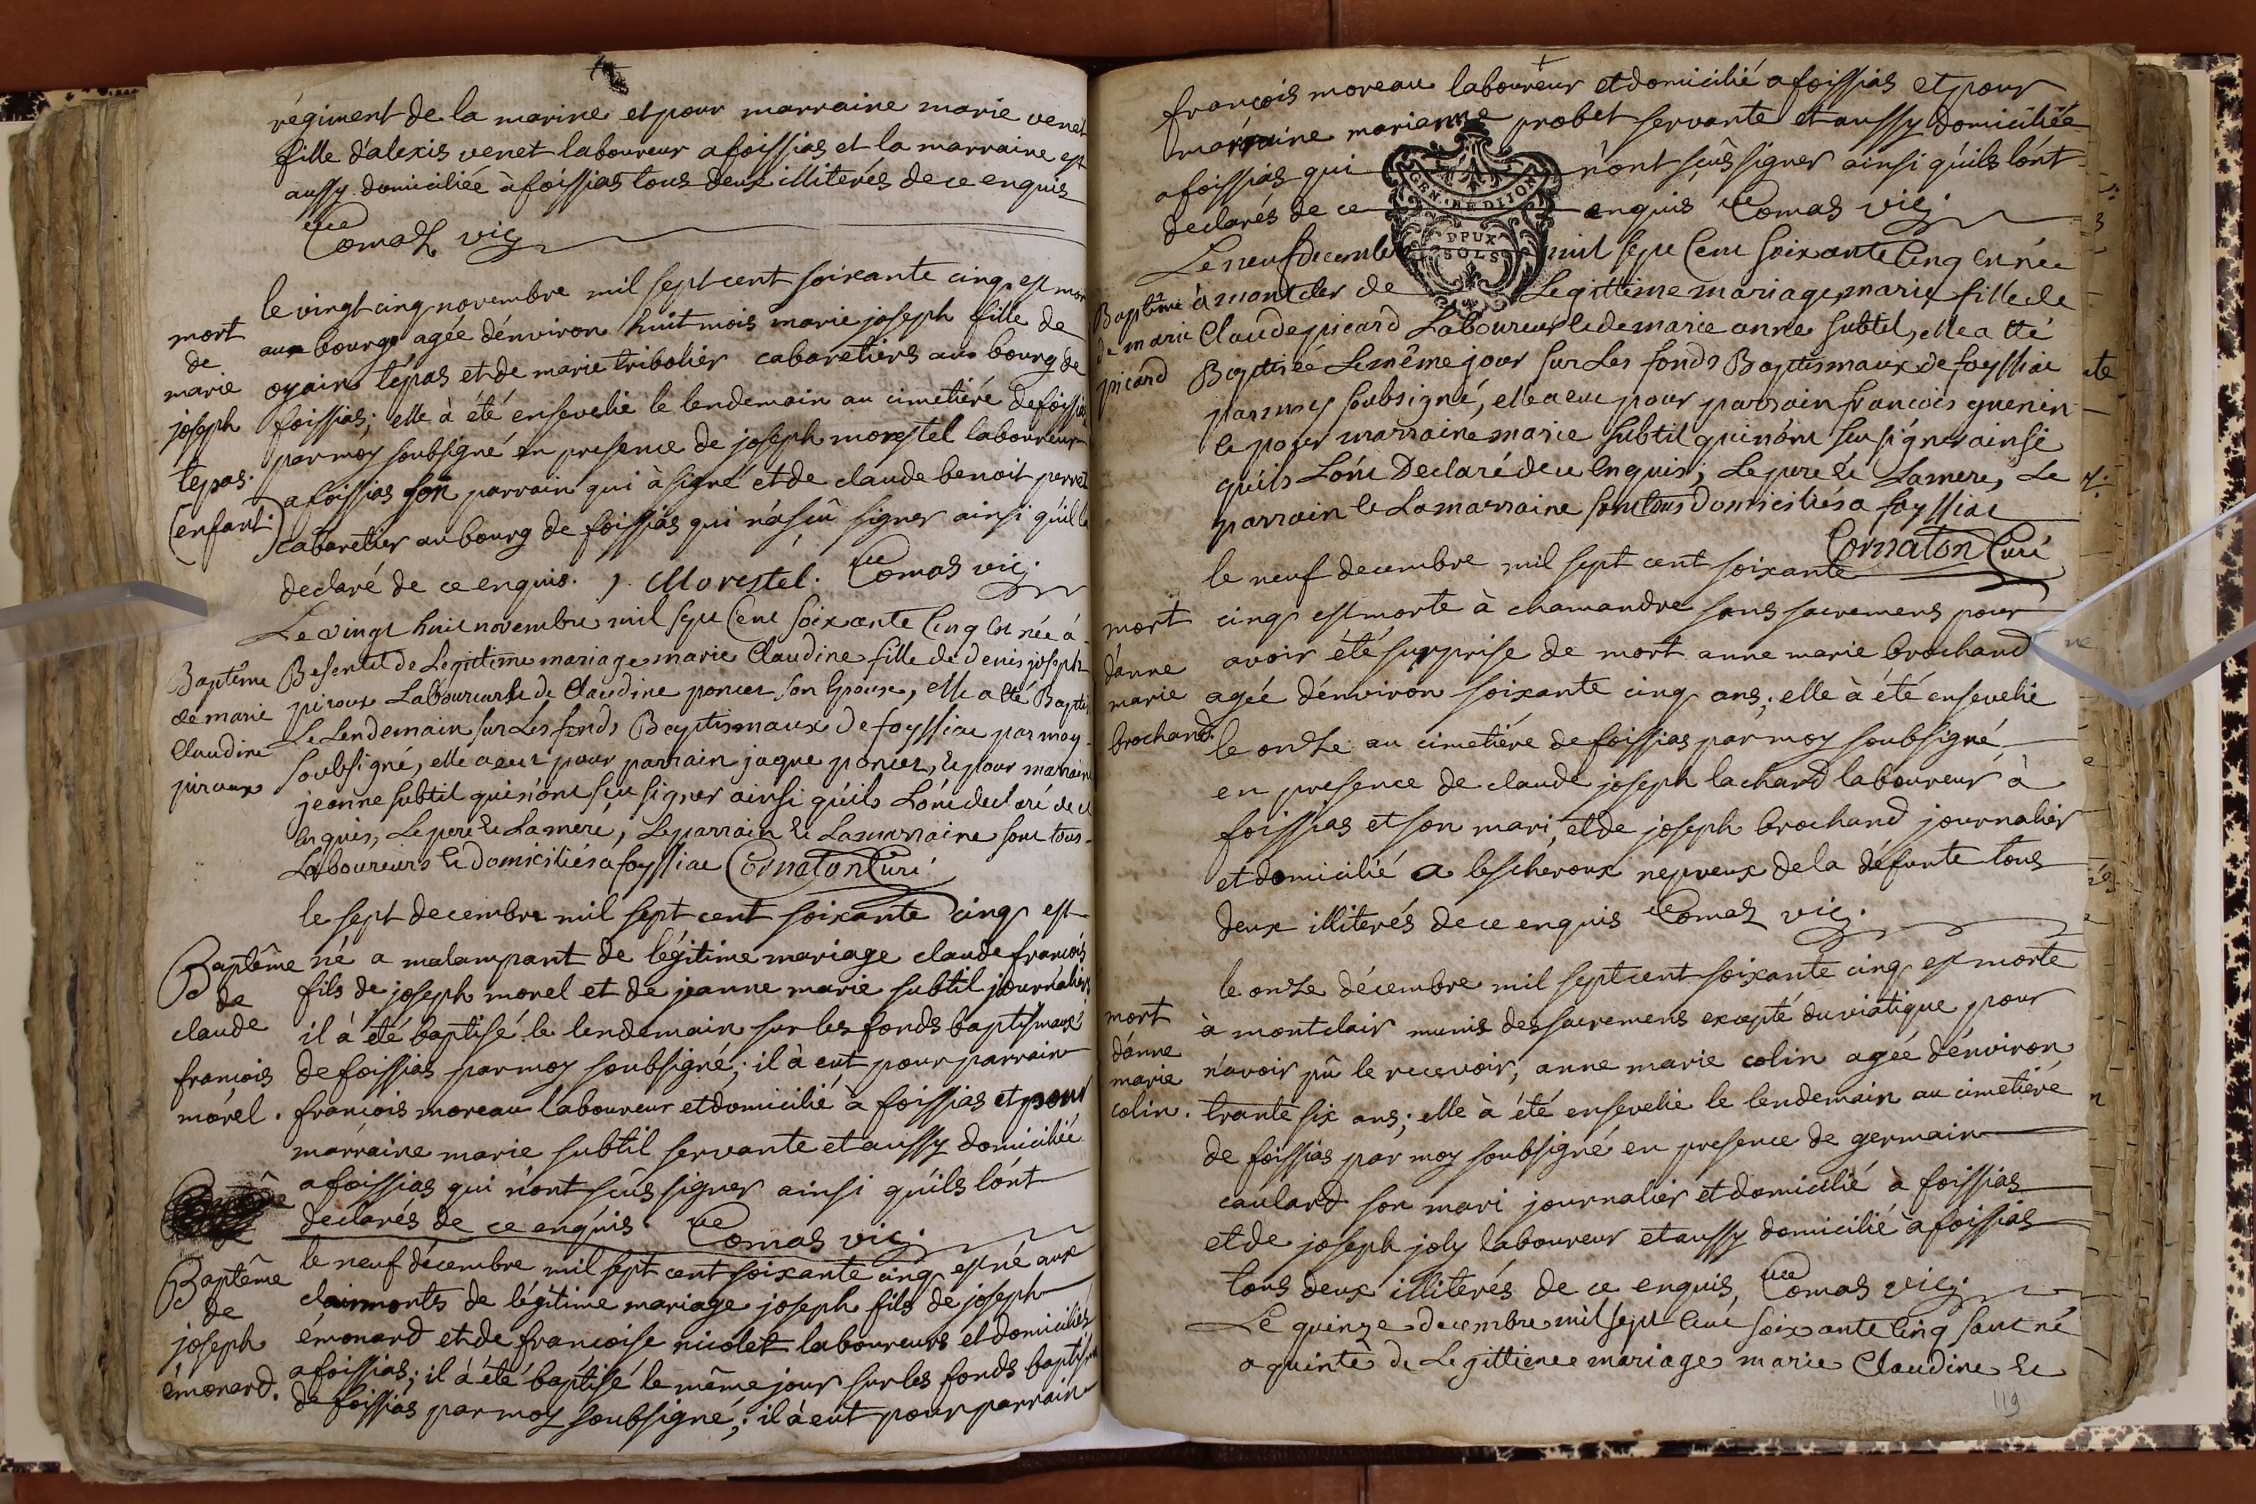 régiment de la marine et pour marraine marie venet
fille d'alexis venet laboureur a foissias et la marraine est
aussy domiciliée à foissias tous deux illiterés de ce enquis
Comas vic
le vingt cinq novembre mil sept cent soixante cinq est mor
mort
de
marie
joseph
tepas.
(enfant.)
au bourg agée d'environ huit mois marie joseph fille de
oyain tépas et de marie tribolier cabaretiers au bourg de
foissias; elle à été ensevelie le lendemain au cimetiére de foissias
par moy soubsigné en presence de joseph morestel laboureur
a foissias son parrain qui à signé et de claude benoit perret
cabaretier au bourg de foissias qui n'a scû signer ainsi qu'il la
declaré de ce enquis. J. Morestel. Comas vic.
Le vingt huit novembre mil sept Cent soixante Cinq Est née à
Baptême
de marie
Claudine
piroux
Besentet de Legittime mariage marie Claudine fille de denis joseph
piroux Laboureur & de Claudine poncet son Epouse, elle a Eté Baptisé
Le Lendemain sur Les fonds Baptismaux de foyssiac par moy
soubsigné, elle a eut pour parrain jaque poncet, & pour marraine
jeanne subtil qui n'ont sçu signer ainsi qu'ils L'ont declaré de ce
Enquis, Le pere & La meré, Le parrain & La marraine sont tous
Laboureurs & domiciliés a foyssiac Cornaton Curé
le sept decembre mil sept cent soixante cinq est
Baptême
de
claude
francois
morel.
né a malampant de légitime mariage claude françois
fils de joseph morel et de jeanne marie subtil journaliers
il à été baptisé le lendemain sur les fonds baptismaux
de foissias par moy soubsigné; il à eut pour parrain
françois moreau laboureur et domicilié à foissias et pour
marraine marie subtil servante et aussy domiciliée
a foissias qui n'ont scûs signer ainsi qu'ils l'ont
declarés de ce enquis. Comas vic.
le neuf décembre mil sept cent soixante cinq est né aux
Baptême
de
joseph
émonard.
clairmonts de légitime mariage joseph fils de joseph
émonard et de francoise nicolet laboureurs et domiciliés
a foissias; il à été baptisé le même jour sur les fonds baptismaux
de foissias par moy soubsigné; il à eut pour parrain
françois moreau laboureur et domicilié a foissias et pour
marraine marianne probet servante et aussy domiciliée
a foissias qui n'ont scûs signer ainsi qu'ils l'ont
declarés de ce enquis Comas vic.
GEN. DE DIJON
DEUX
SOLS
Le neuf decembre mil sept Cent soixante Cinq Est née
Baptême
de marie
picard
à montcler de Legittime mariage marie fille de
Claude picard Laboureur & de marie anne subtil, elle a Eté
Baptisée Le même jour sur Les fonds Baptismaux de foyssiac
par moy soubsigné, elle a eut pour parrain francois guenin
& pour marraine marie subtil qui n'ont sçu signer ainsi
qu'ils L'ont Declaré de ce Enquis; Le pere & La mere, Le
parrain & La marraine sont tous Domiciliés a foyssiac
Cornaton Curé
le neuf decembre mil sept cent soixante
mort
d'anne
marie
brochand.
cinq est morte à chamandre sans sacremens pour
avoir été surprise de mort anne marie brochand
agée d'environ soixante cinq ans; elle à été ensevelie
le onze au cimetiére de foissias par moy soubsigné
en presence de claude joseph lachard laboureur à
foissias et son mari, et de joseph brochand journalier
et domicilié a lescheroux nepveux de la défunte tous
deux illiterés de ce enquis Comas vic.
le onze décembre mil sept cent soixante cinq est morte
mort
d'anne
marie
colin.
à montclair munis des sacremens excepté du viatique pour
n'avoir pû le recevoir, anne marie colin agée d'environ
trante six ans; elle à été ensevelie le lendemain au cimetiéré
de foissias par moy soubsigné en presence de germain
caulard son mari journalier et domicilié à foissias
et de joseph joly laboureur et aussy domicilié à foissias
tous deux illiterés de ce enquis, Comas vic.
Le quinze decembre mil sept Cent soixante Cinq sont né
a quinte de Legittieme mariage marie Claudine &
119